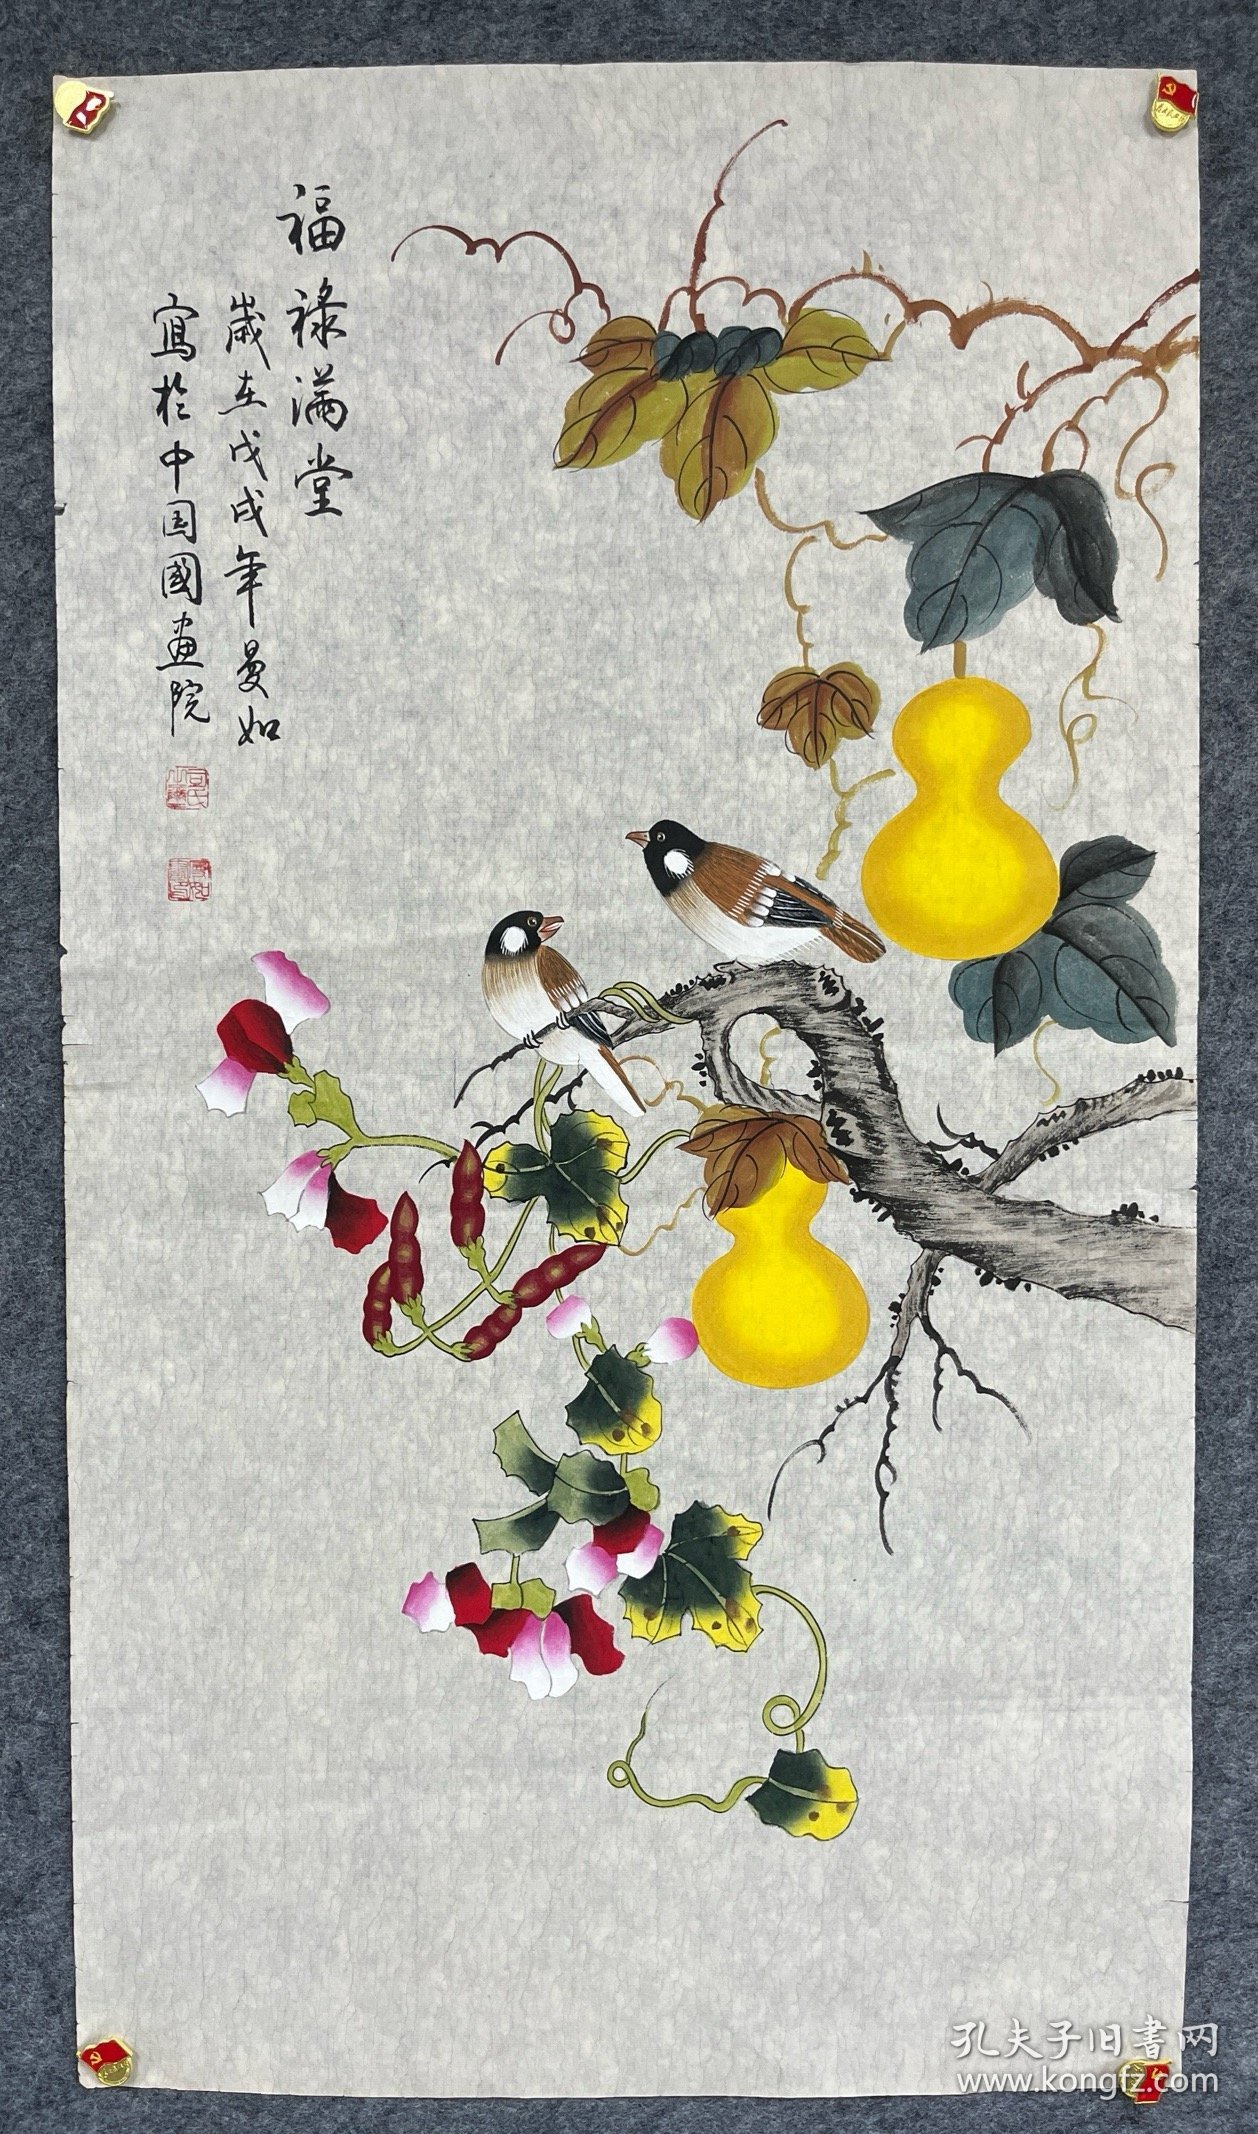 福禄满堂
歲在戊戌年曼如
寫於中国國畫院
孔夫子旧書网
www.kongfz.com